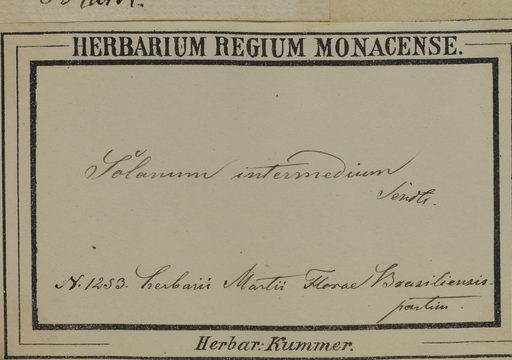 HERBARIUM REGIUM MONACENSE.
Solanum intermedium
Sendt.
N. 1253. herbarii Martii Florae Brasiliensis.
partim.
Herbar: Kummer.